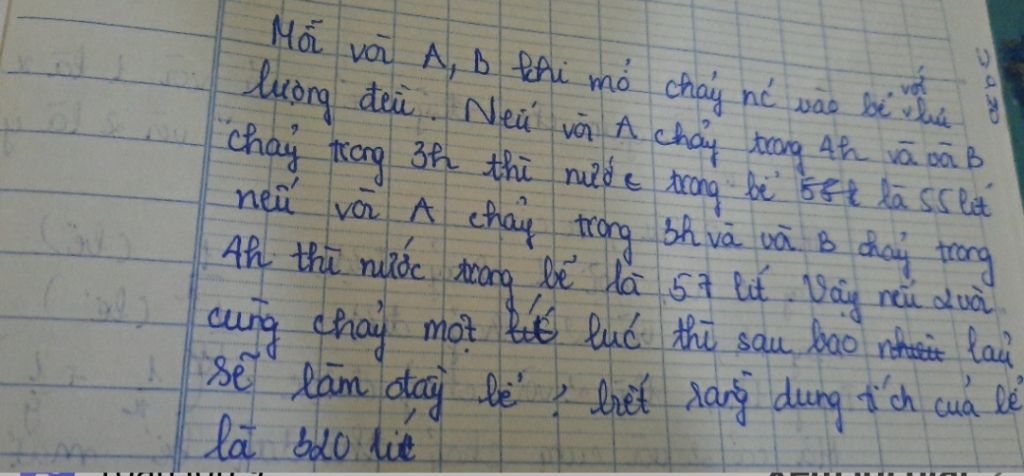 Mỗi vòi A, B khi mở chảy nć vào bể với
lượng đều. Nếu vòi A chảy trong 4h và vòi B
chảy trong 3h thì nước trong bể là 55 lít
nếu vòi A chảy trong 3h và vòi B chảy trong
4h thì nước trong bể là 57 lít. Vậy nếu 2 vòi
cùng chảy một lúc thì sau bao lâu
sẽ làm đầy bể ; biết rằng dung tích của bể
là 320 lít